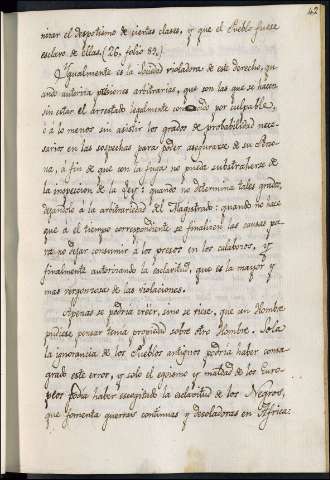 42
nizar el despotismo de ciertas clases, y que el Pueblo fuese
esclavo de Ellas. (26, folio 82.)
Igualmente es la Sociedad violadora de este derecho, qu-
ando autoriza prisiones arbitrarias, que son las que se hacen
sin estar el arrestado legalmente conocido por culpable,
ó á lo menos sin asistir los grados de probabilidad nece-
sarios en las sospechas para poder asegurarse de su Perso-
na, á fin de que con la fuga no pueda substraherse de
la inspeccion de la Ley: quando no determina tales grados,
dejandolo á la arbitrariedad del Magistrado: quando no hace
que á el tiempo correspondiente se finalicen las causas pa-
ra no dejar consumir á los presos en los calabozos, y
finalmente autorizando la esclavitud, que es la mayor y
mas vergonzosa de las violaciones.
Apenas se podria creer, sino se viese, que un Hombre
pudiese pensar tenia propiedad sobre otro Hombre. Sola
la ignorancia de los Pueblos antiguos podria haber consa-
grado este error, y solo el egoismo y maldad de los Euro-
peos podia haber escogitado la esclavitud de los Negros,
que fomenta guerras continuas y desoladoras en Africa: